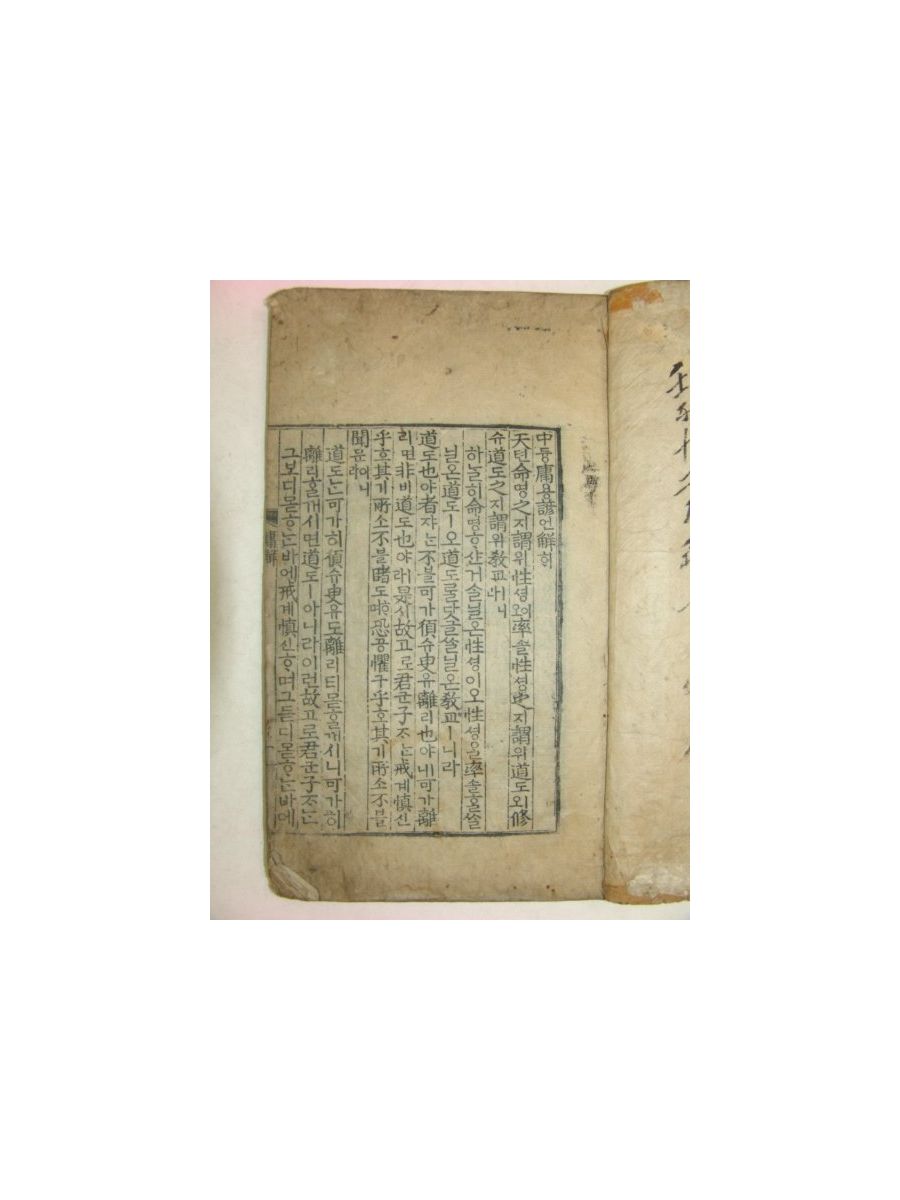 中듕庸용諺언解ᄒᆡ
天텬命명之지謂위性셩이오率솔性셩之지謂위道도ㅣ오修
슈道도之지謂위敎교ㅣ니라
하ᄂᆞᆯ히命명ᄒᆞ샨거ᄉᆞᆯ닐온性셩이오性셩을率솔ᄒᆞᆯᄉᆞᆯ
닐온道도ㅣ오道도ᄅᆞᆯ닷글ᄉᆞᆯ닐온敎교ㅣ니라
道도也야者쟈ᄂᆞᆫ不블可가須슈臾유離리也야ㅣ니可가離
리면非비道도也야ㅣ라是시故고로君군子ᄌᆞᄂᆞᆫ戒계愼신
乎호其기所소不블睹도ᄒᆞ며恐공懼구乎호其기所소不블
聞문이니라
道도ᄂᆞᆫ可가히須슈臾유도離리티몯ᄒᆞᆯ꺼시니可가히
離리ᄒᆞᆯ꺼시면道도ㅣ아니라이런故고로君군子ᄌᆞᄂᆞᆫ
그보디몯ᄒᆞᄂᆞᆫ바에戒계愼신ᄒᆞ며그듣디몯ᄒᆞᄂᆞᆫ바에
庸解